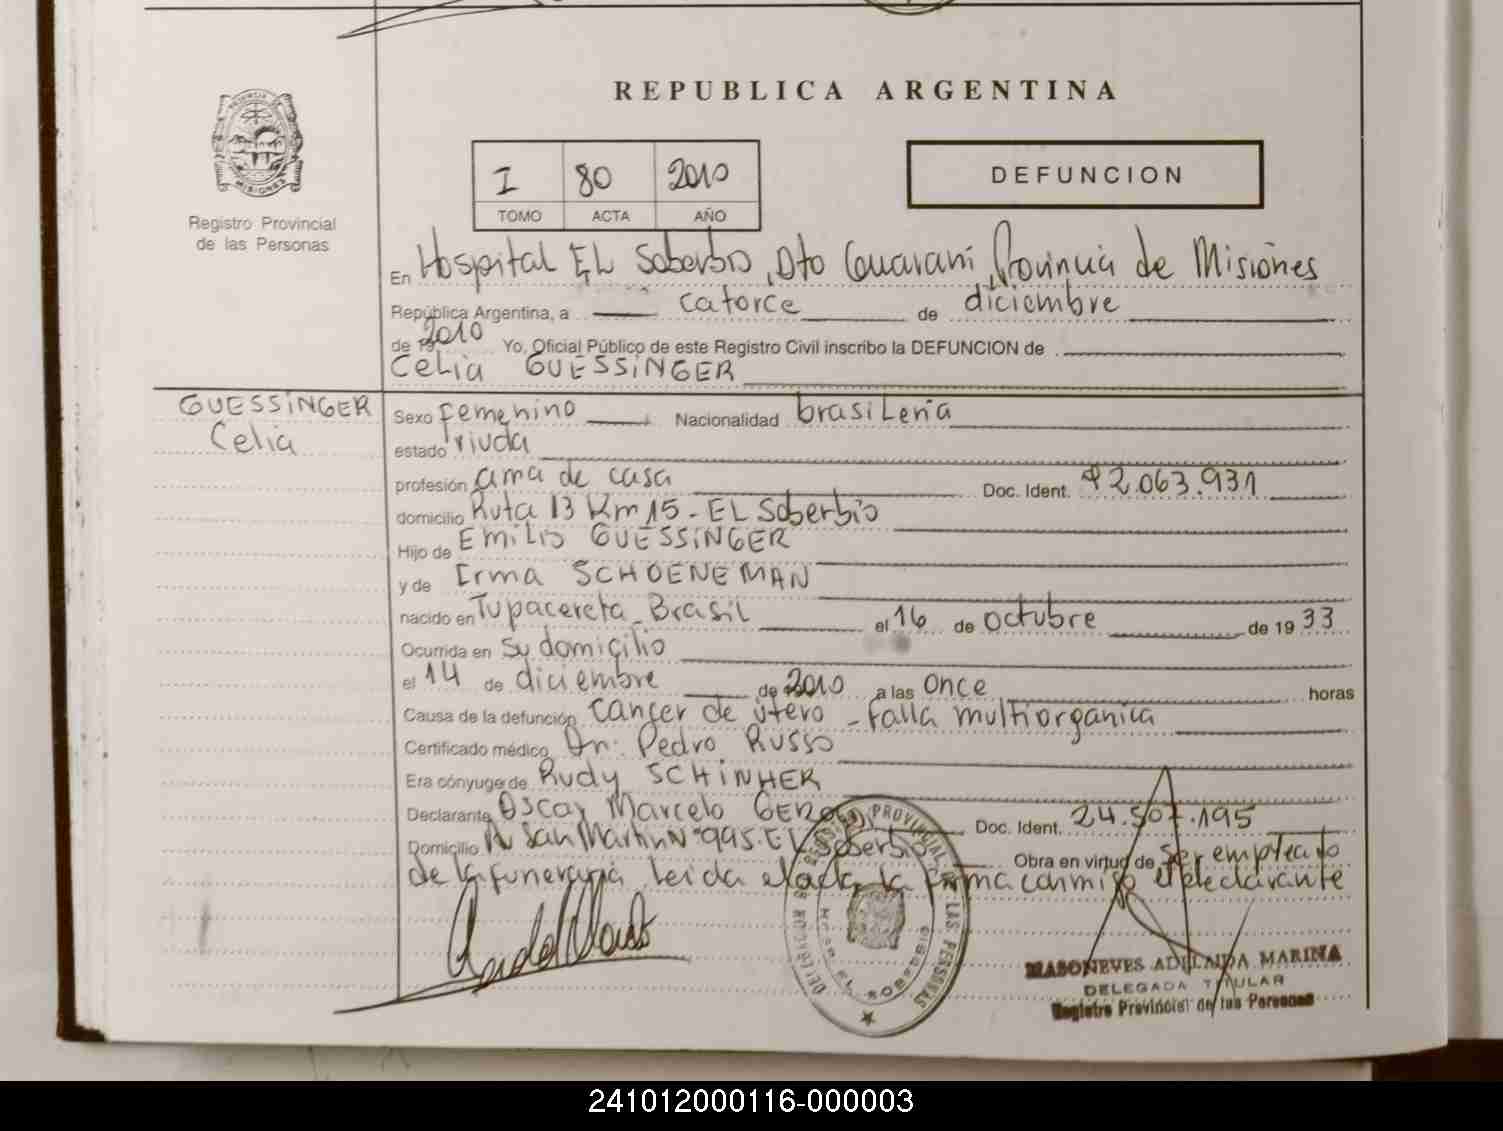 REPUBLICA ARGENTINA
PROVINCIA DE
MISIONES
Registro Provincial
de las Personas
I 80 2010
TOMO ACTA AÑO
DEFUNCION
En Hospital EL Soberbio, Dto Guaraní, Provincia de Misiones
República Argentina, a catorce de diciembre
de 19 2010 Yo, Oficial Público de este Registro Civil inscribo la DEFUNCION de
Celia GUESSiNGER
GUESSiNGER
Celia
Sexo femenino Nacionalidad brasileña
estado viuda
profesión ama de casa Doc. Ident. 92.063.931
domicilio Ruta 13 Km 15 - EL Soberbio
Hijo de Emilio GUESSiNGER
y de Irma SCHOENEMAN
nacido en Tupacereta - Brasil el 16 de octubre de 19 33
Ocurrida en su domicilio
el 14 de diciembre de 2010 a las once horas
Causa de la defunción cancer de útero - Falla multiorganica
Certificado médico Dr: Pedro Russo
Era cónyuge de Rudy SCHiNHER
Declarante Oscar Marcelo Doc. Ident. 24.507.195
Domicilio Av San Martin N° 995. EL Soberbio Obra en virtud de ser empleado
de la funeraria, leida el acta, la firma conmigo el declarante
REGISTRO PROVINCIAL DE LAS PERSONAS
EL SOBERBIO
MASONEVES ADELAIDA MARINA
DELEGADA TITULAR
Registro Provincial de las Personas
241012000116-000003